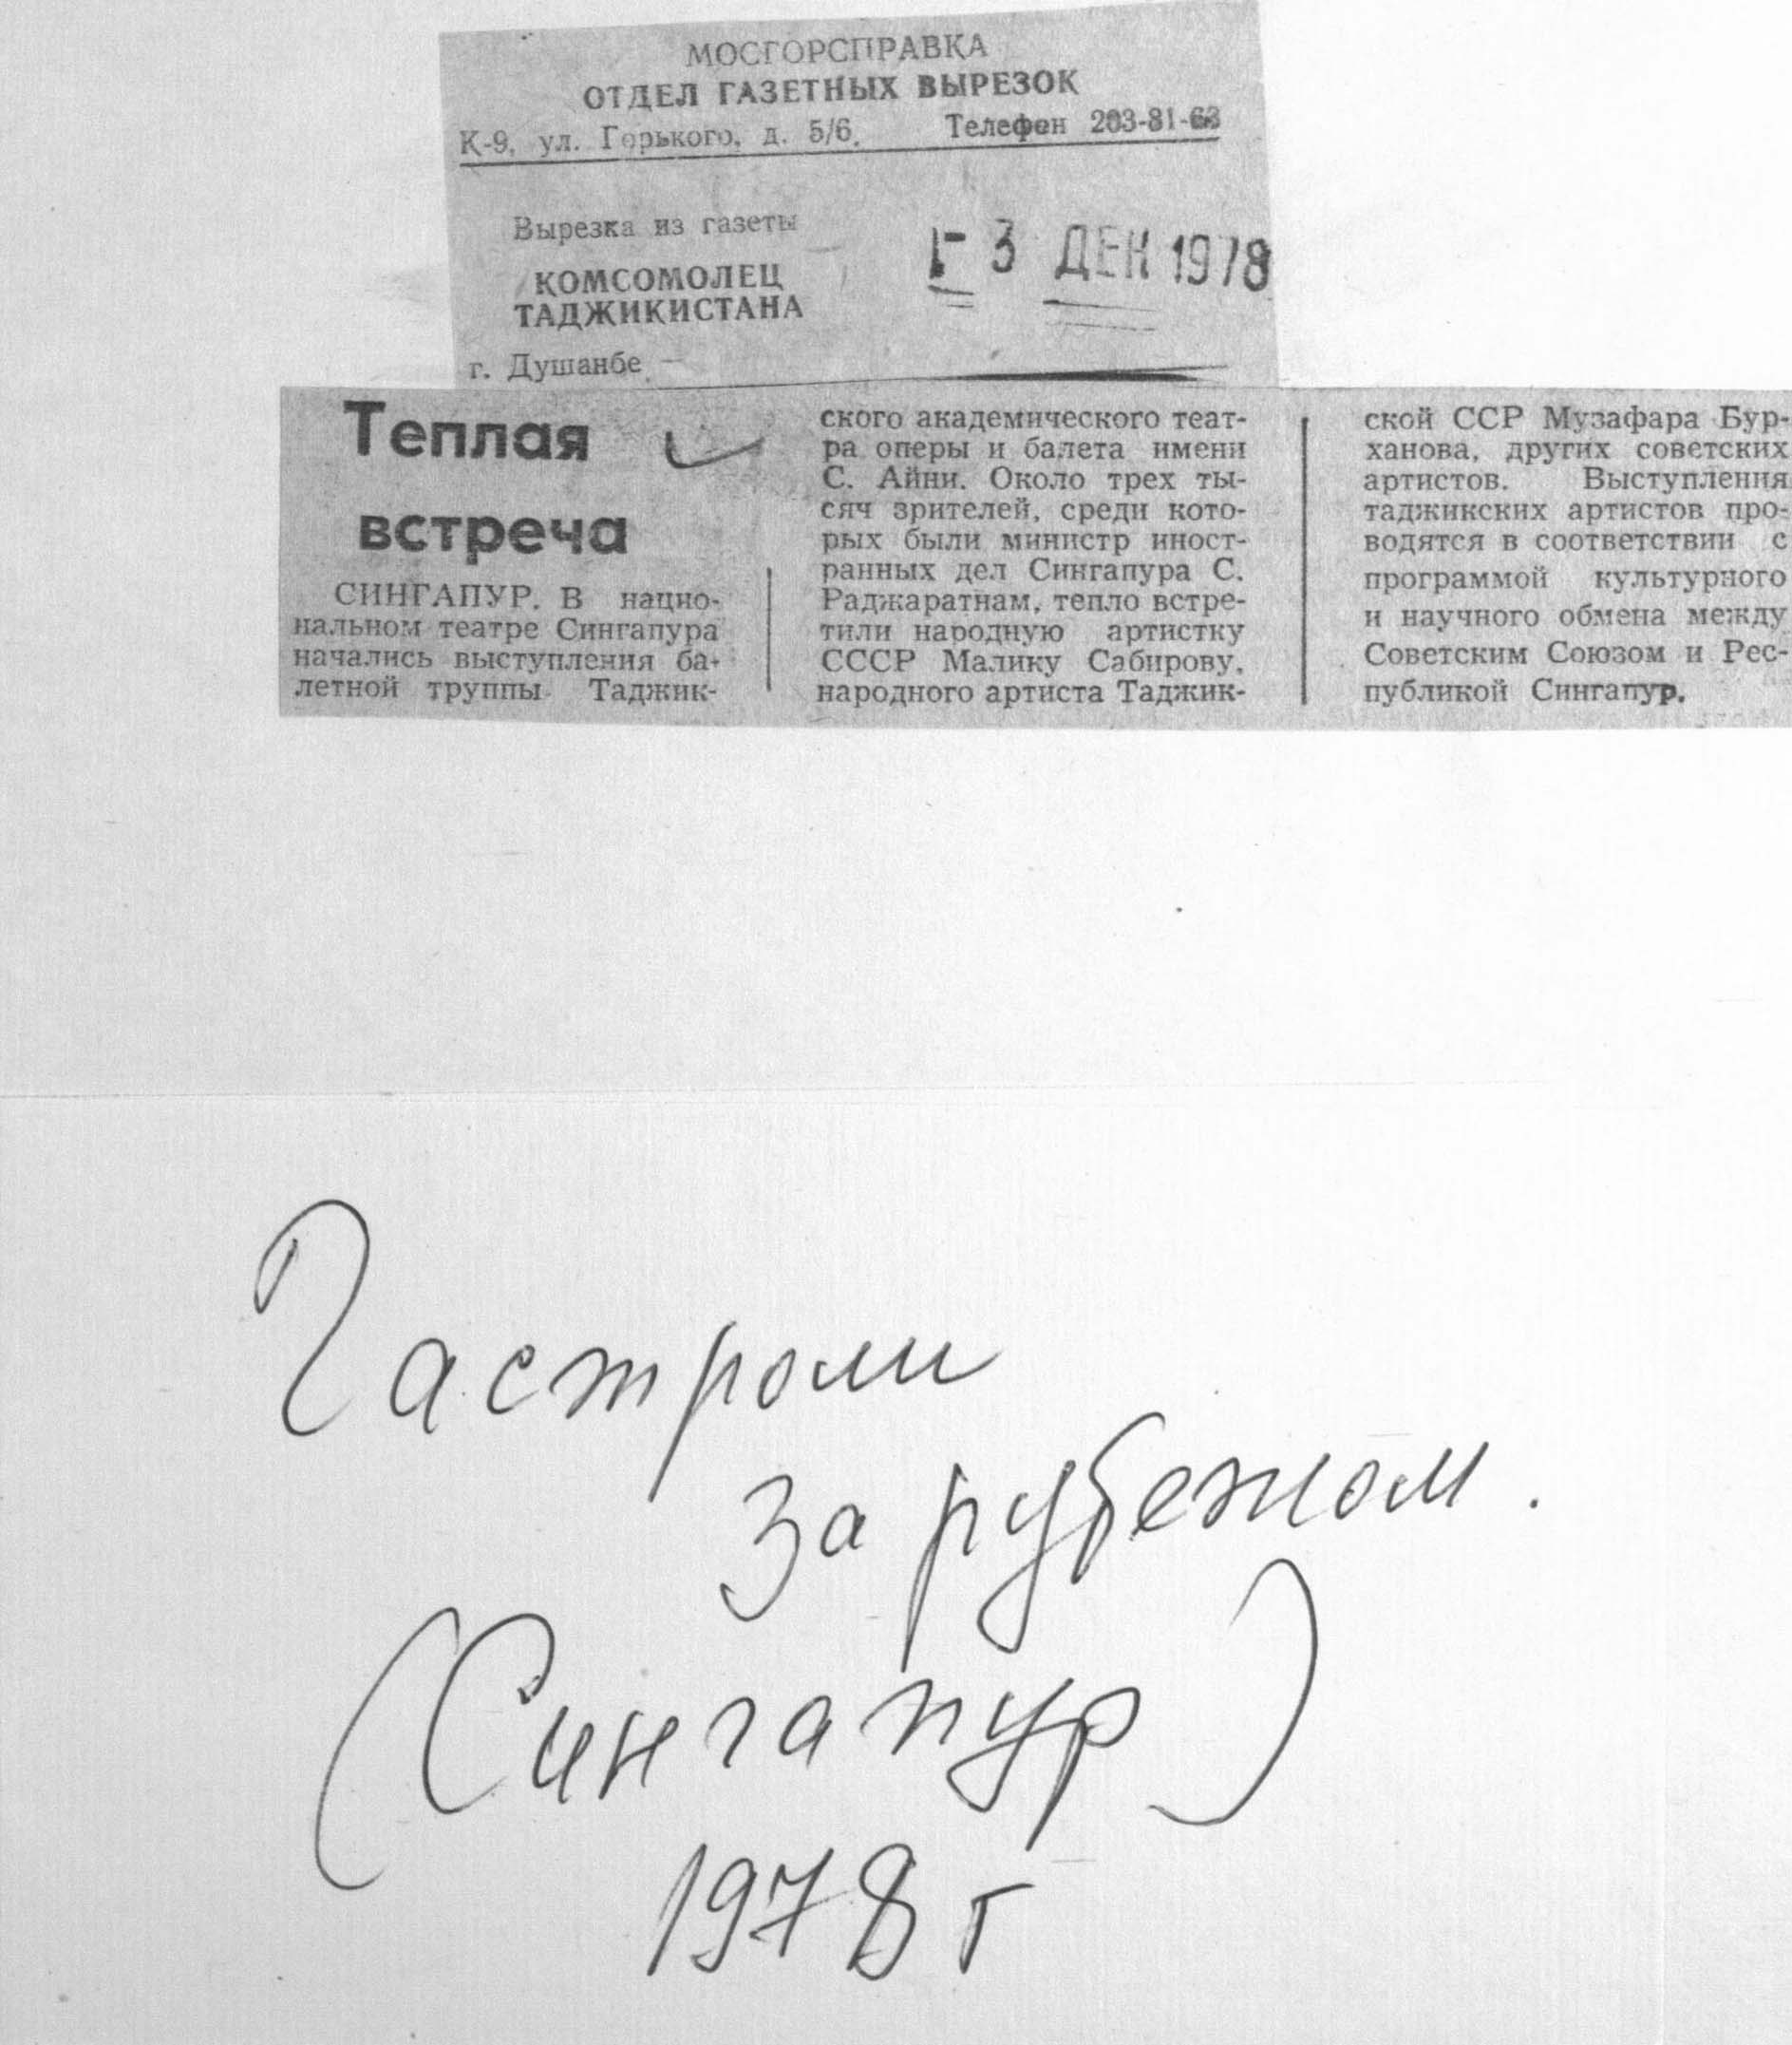 МОСГОРСПРАВКА
ОТДЕЛ ГАЗЕТНЫХ ВЫРЕЗОК
К-9, ул. Горького, д. 5/6. Телефон 203-81-63
Вырезка из газеты
КОМСОМОЛЕЦ
ТАДЖИКИСТАНА
- 3 ДЕК 1978
г. Душанбе
Теплая
встреча
СИНГАПУР. В нацио-
нальном театре Сингапура
начались выступления ба-
летной труппы Таджик-
ского академического теат-
ра оперы и балета имени
С. Айни. Около трех ты-
сяч зрителей, среди кото-
рых были министр иност-
ранных дел Сингапура С.
Раджаратнам, тепло встре-
тили народную артистку
СССР Малику Сабирову,
народного артиста Таджик-
ской ССР Музафара Бур-
ханова, других советских
артистов. Выступления
таджикских артистов про-
водятся в соответствии с
программой культурного
и научного обмена между
Советским Союзом и Рес-
публикой Сингапур.
Гастроли
за рубежом.
(Сингапур)
1978 г